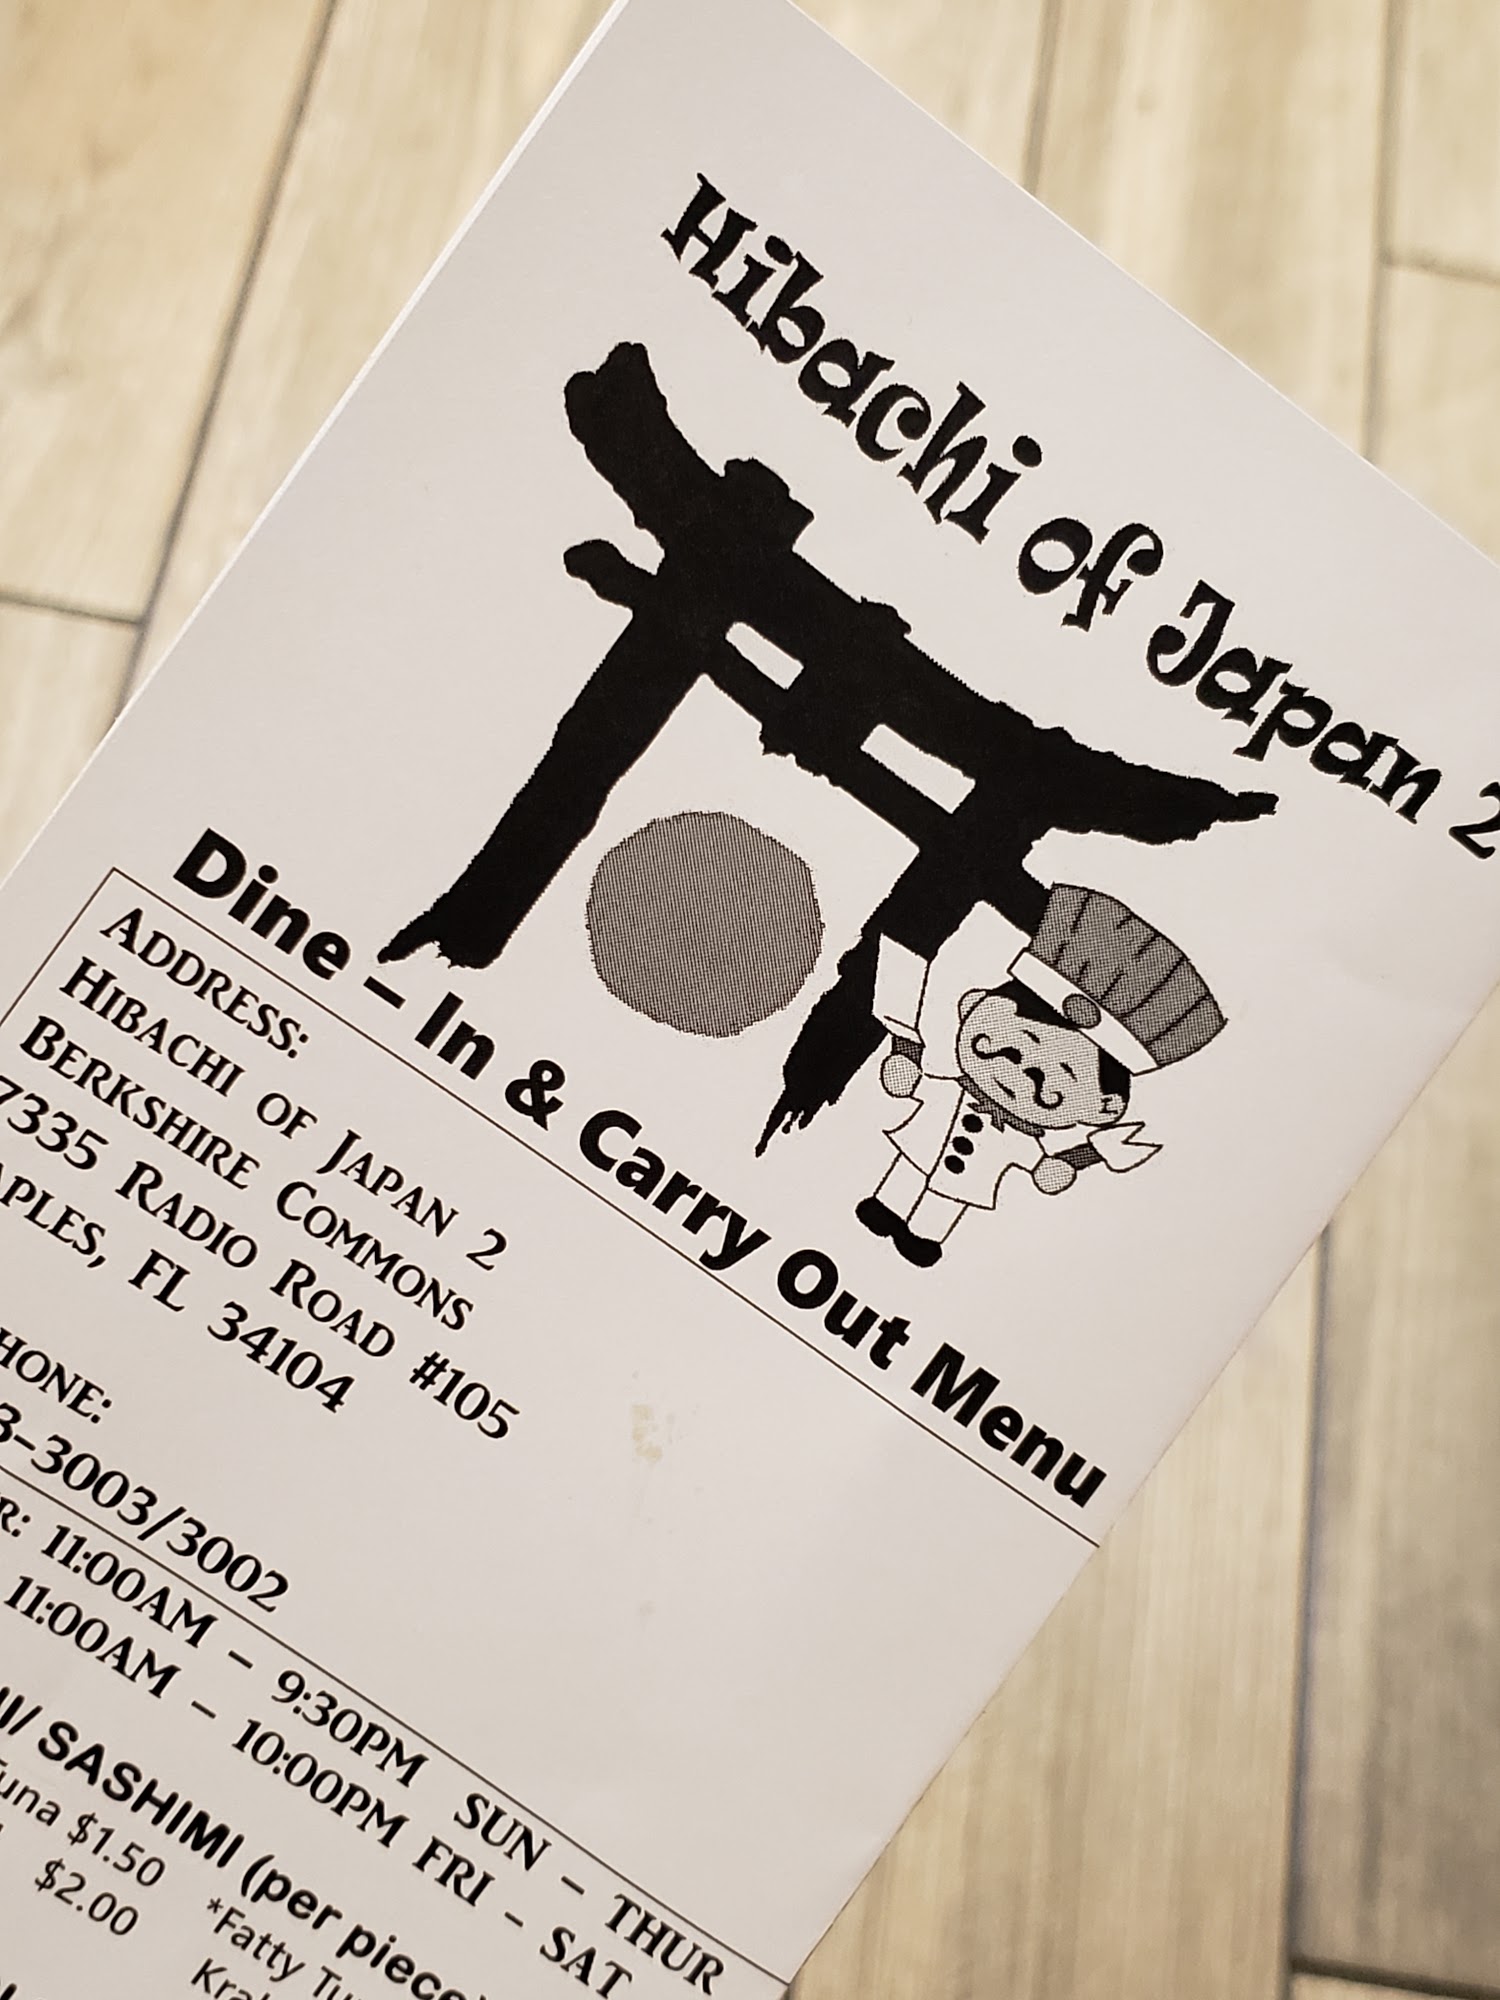 Hibachi of Japan 2
Dine – In & Carry Out Menu
ADDRESS:
HIBACHI OF JAPAN 2
BERKSHIRE COMMONS
7335 RADIO ROAD #105
APLES, FL 34104
HONE:
3-3003/3002
R: 11:00AM – 9:30PM SUN – THUR
11:00AM – 10:00PM FRI – SAT
/ SASHIMI (per piece)
una $1.50
$2.00
*Fatty Tu
Kra